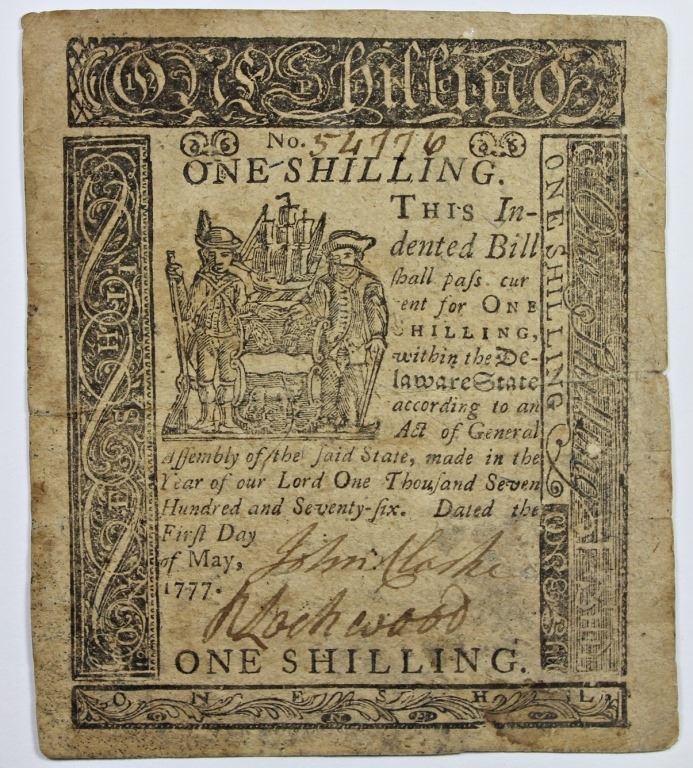 One Shilling
No. 54776
ONE SHILLING.
THIS In-
dented Bill
ſhall paſs cur
ent for ONE
SHILLING,
within the De-
laware State
according to an
Act of General
Aſſembly of the ſaid State, made in the
Year of our Lord One Thouſand Seven
Hundred and Seventy-ſix. Dated the
Firſt Day
of May,
1777.
John Clarke
R Lockwood
ONE SHILLING.
ONE SHILLING
One Shilling
ONE SHIL